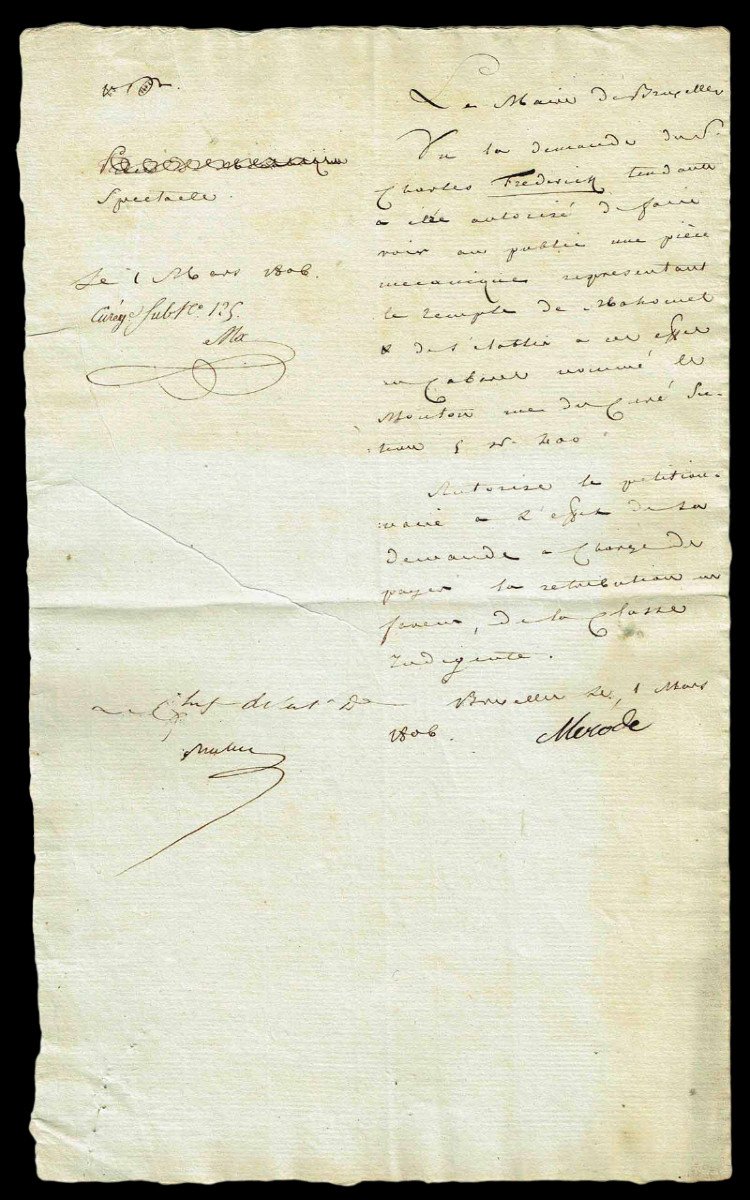 Spectacle.
Le 1 Mars 1806.
Le Maire de Bruxelles
Vu la demande du Sr
Charles Frederick tendante
a être autorisé de faire
voir au public une pièce
mecanique representant
le temple de Mahomet
& de l'établir a cet effet
au Cabaret nommé le
Mouton rue du Curé Se-
tion 5 n. 400
Autorise le petition-
naire a l'effet de sa
demande a Charge de
payer la retribution en
faveur, de la Classe
Indigente.
Bruxelles le, 1 Mars
1806.
Merode
Le Chef